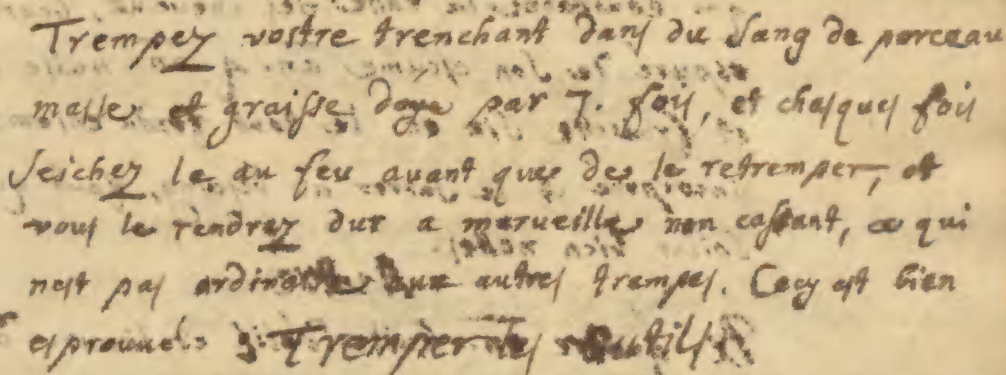 Trempez vostre trenchant dans du sang de porceau
masle et graisse doye par 7. fois, et chasques fois
seichez le au feu avant que de le retremper, et
vous le rendrez dur a merveille non cassant, ce qui
nest pas ordinaire aux autres trempes. Cecy est bien
esprouvé. Tremper les outils